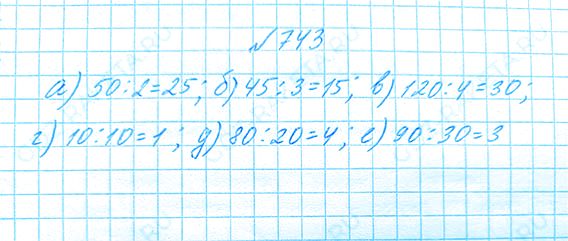 №743
а) 50:2=25; б) 45:3=15; в) 120:4=30;
г) 10:10=1; д) 80:20=4; е) 90:30=3